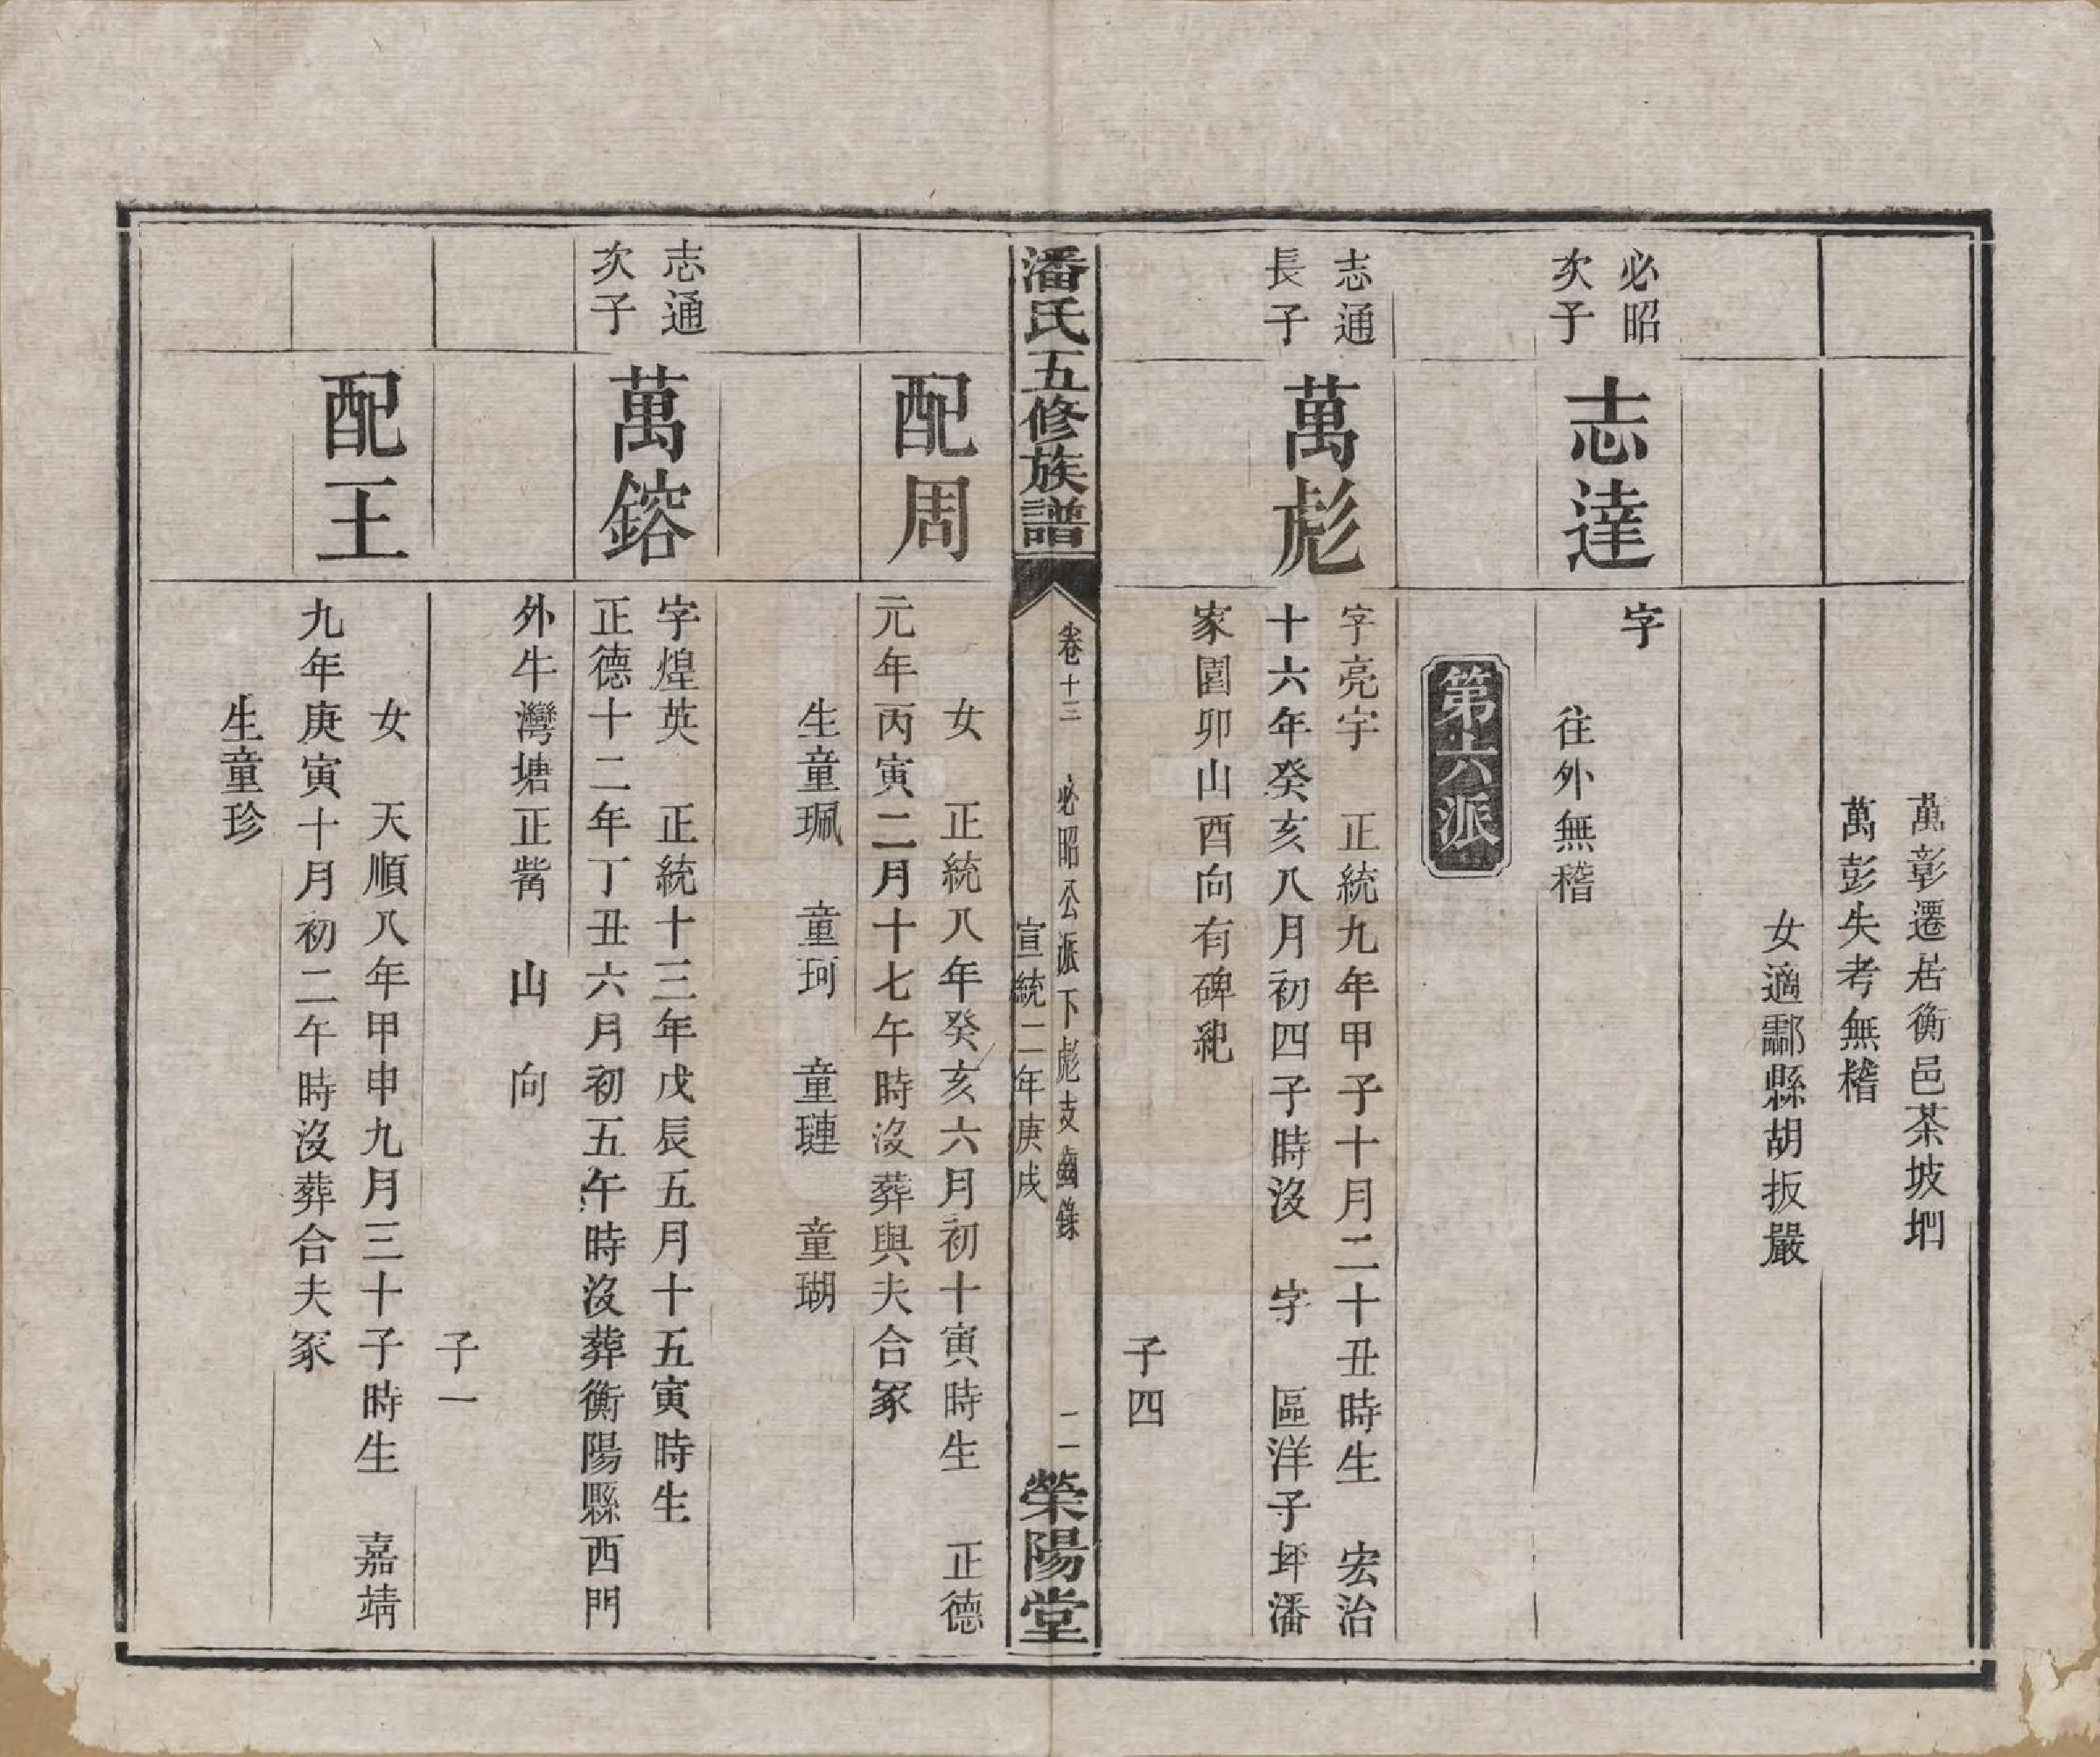 萬彰遷居衡邑茶坡垇
萬彭失考無稽
女適酃縣胡扳嚴
必昭
次子
志達
字
往外無稽
第六派
志通
長子
萬彪
字亮宇　正統九年甲子十月二十丑時生　宏治
十六年癸亥八月初四子時沒　字　區洋子坪潘
家園卯山酉向有碑紀
子四
潘氏五修族譜
卷十三　必昭公派下彪支齒錄　二
宣統二年庚戌
榮陽堂
配周
女　正統八年癸亥六月初十寅時生　正德
元年丙寅二月十七午時沒葬與夫合冢
生童珮　童珂　童璉　童瑚
志通
次子
萬鎔
字煌英　正統十三年戊辰五月十五寅時生
正德十二年丁丑六月初五午時沒葬衡陽縣西門
外牛灣塘正觜　山　向
子一
配王
女　天順八年甲申九月三十子時生　嘉靖
九年庚寅十月初二午時沒葬合夫冢
生童珍